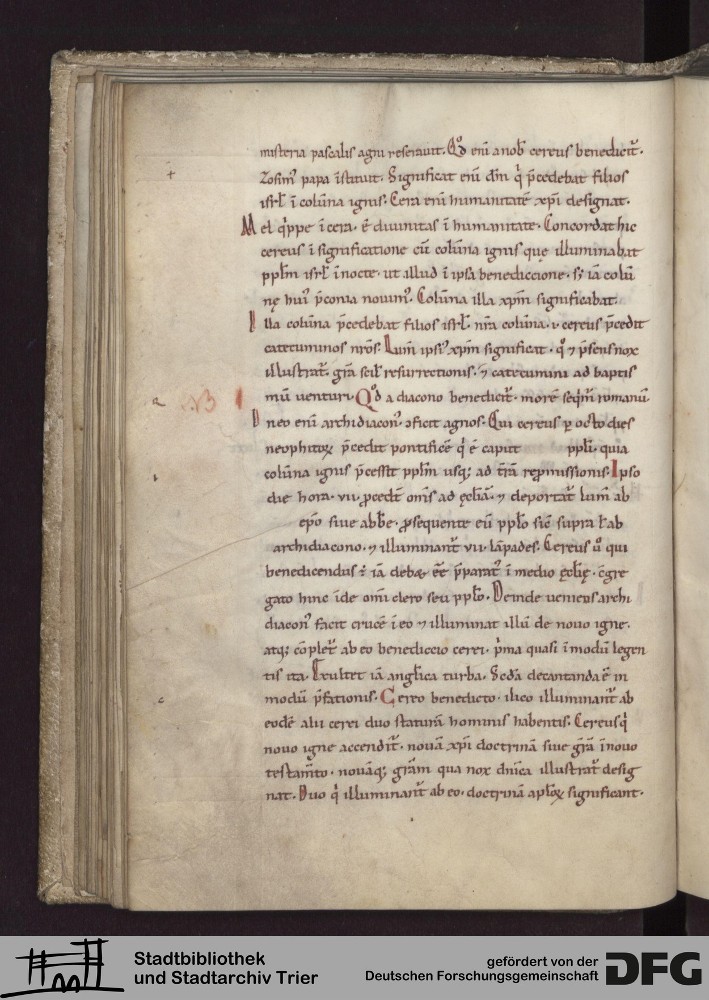 misteria pascalis agni reserauit. Qd̄ eni a nob̄ cereus benedicit᷑.
Zosim᷒ papa īstituit. Significat eni dn̄m qͥ p̄cedebat filios
isrl̄ ī colūna ignis. Cera eni humanitatē xpi designat.
Mel qͥppe ī cera. ē diuinitas ī humanitate. Concordat hic
cereus ī significatione cū colūna ignis que illuminabat
pplm̄ isrl̄ ī nocte. ut illud ī ipsa benediccione. s; iā colū
nę hui᷒ p̄conia nouim᷒. Colūna illa xpm̄ significabat.
Illa colūna p̄cedebat filios isrl̄. nr̄a colūna .i. cereus p̄cedit
catecuminos nr̄os. Lum̄ ipsi᷒ xpm̄ significat. qͦ ⁊ p̄sens nox
illustrat᷑. grā scil̄ resurrectionis. ⁊ catecumini ad baptis
mū uenturi. Qd̄ a diacono benedicit᷑. morē seqͥm̄ romanū.
neo eni archidiacon᷒. oficit agnos. Qui cereus ꝑ octo dies
neophitoꝝ p̄cedit pontificē qͥ ē caput ppli. quia
colūna ignis p̄cessit pplm̄ usq; ad tr̄ā rep̄missionis. Ipso
die hora .vii. ꝓcedēt om̄s ad ęcliā. ⁊ deportat᷑ lum̄ ab
ep̄o siue abb̄e. ꝓsequente eū ppl̄o sic̄ supra t̄ ab
archidiacono. ⁊ illuminant᷑ vii. lāpades. Cereus u̾ qui
benedicendus ē iā debet eē p̄parat᷒ ī medio ęclię. cgre
gato hinc īde omī clero seu ppl̄o. Deinde ueniens archi
diacon᷒ facit crucē ī eo ⁊ illuminat illū de nouo igne.
atq; cōplet᷑ ab eo benediccio cerei. p̄ma quasi ī modū legen
tis ita. Exultet iā anglica turba. Scd̄a decantanda ē in
modū p̄fationis. Cereo benedicto. ilico illuminant᷑ ab
eodē alii cerei duo staturā hominis habentis. Cereus qͥ
nouo igne accendit᷑. nouā xpi doctrinā siue grā̄ ī nouo
testam̄to. nouāq; grā̄m qua nox dn̄ica illustrat᷑ desig
nat. Duo qͥ illuminant᷑ ab eo. doctrinā apl̄oꝝ significant.
a
b
c
Stadtbibliothek
und Stadtarchiv Trier
gefördert von der
Deutschen Forschungsgemeinschaft
DFG